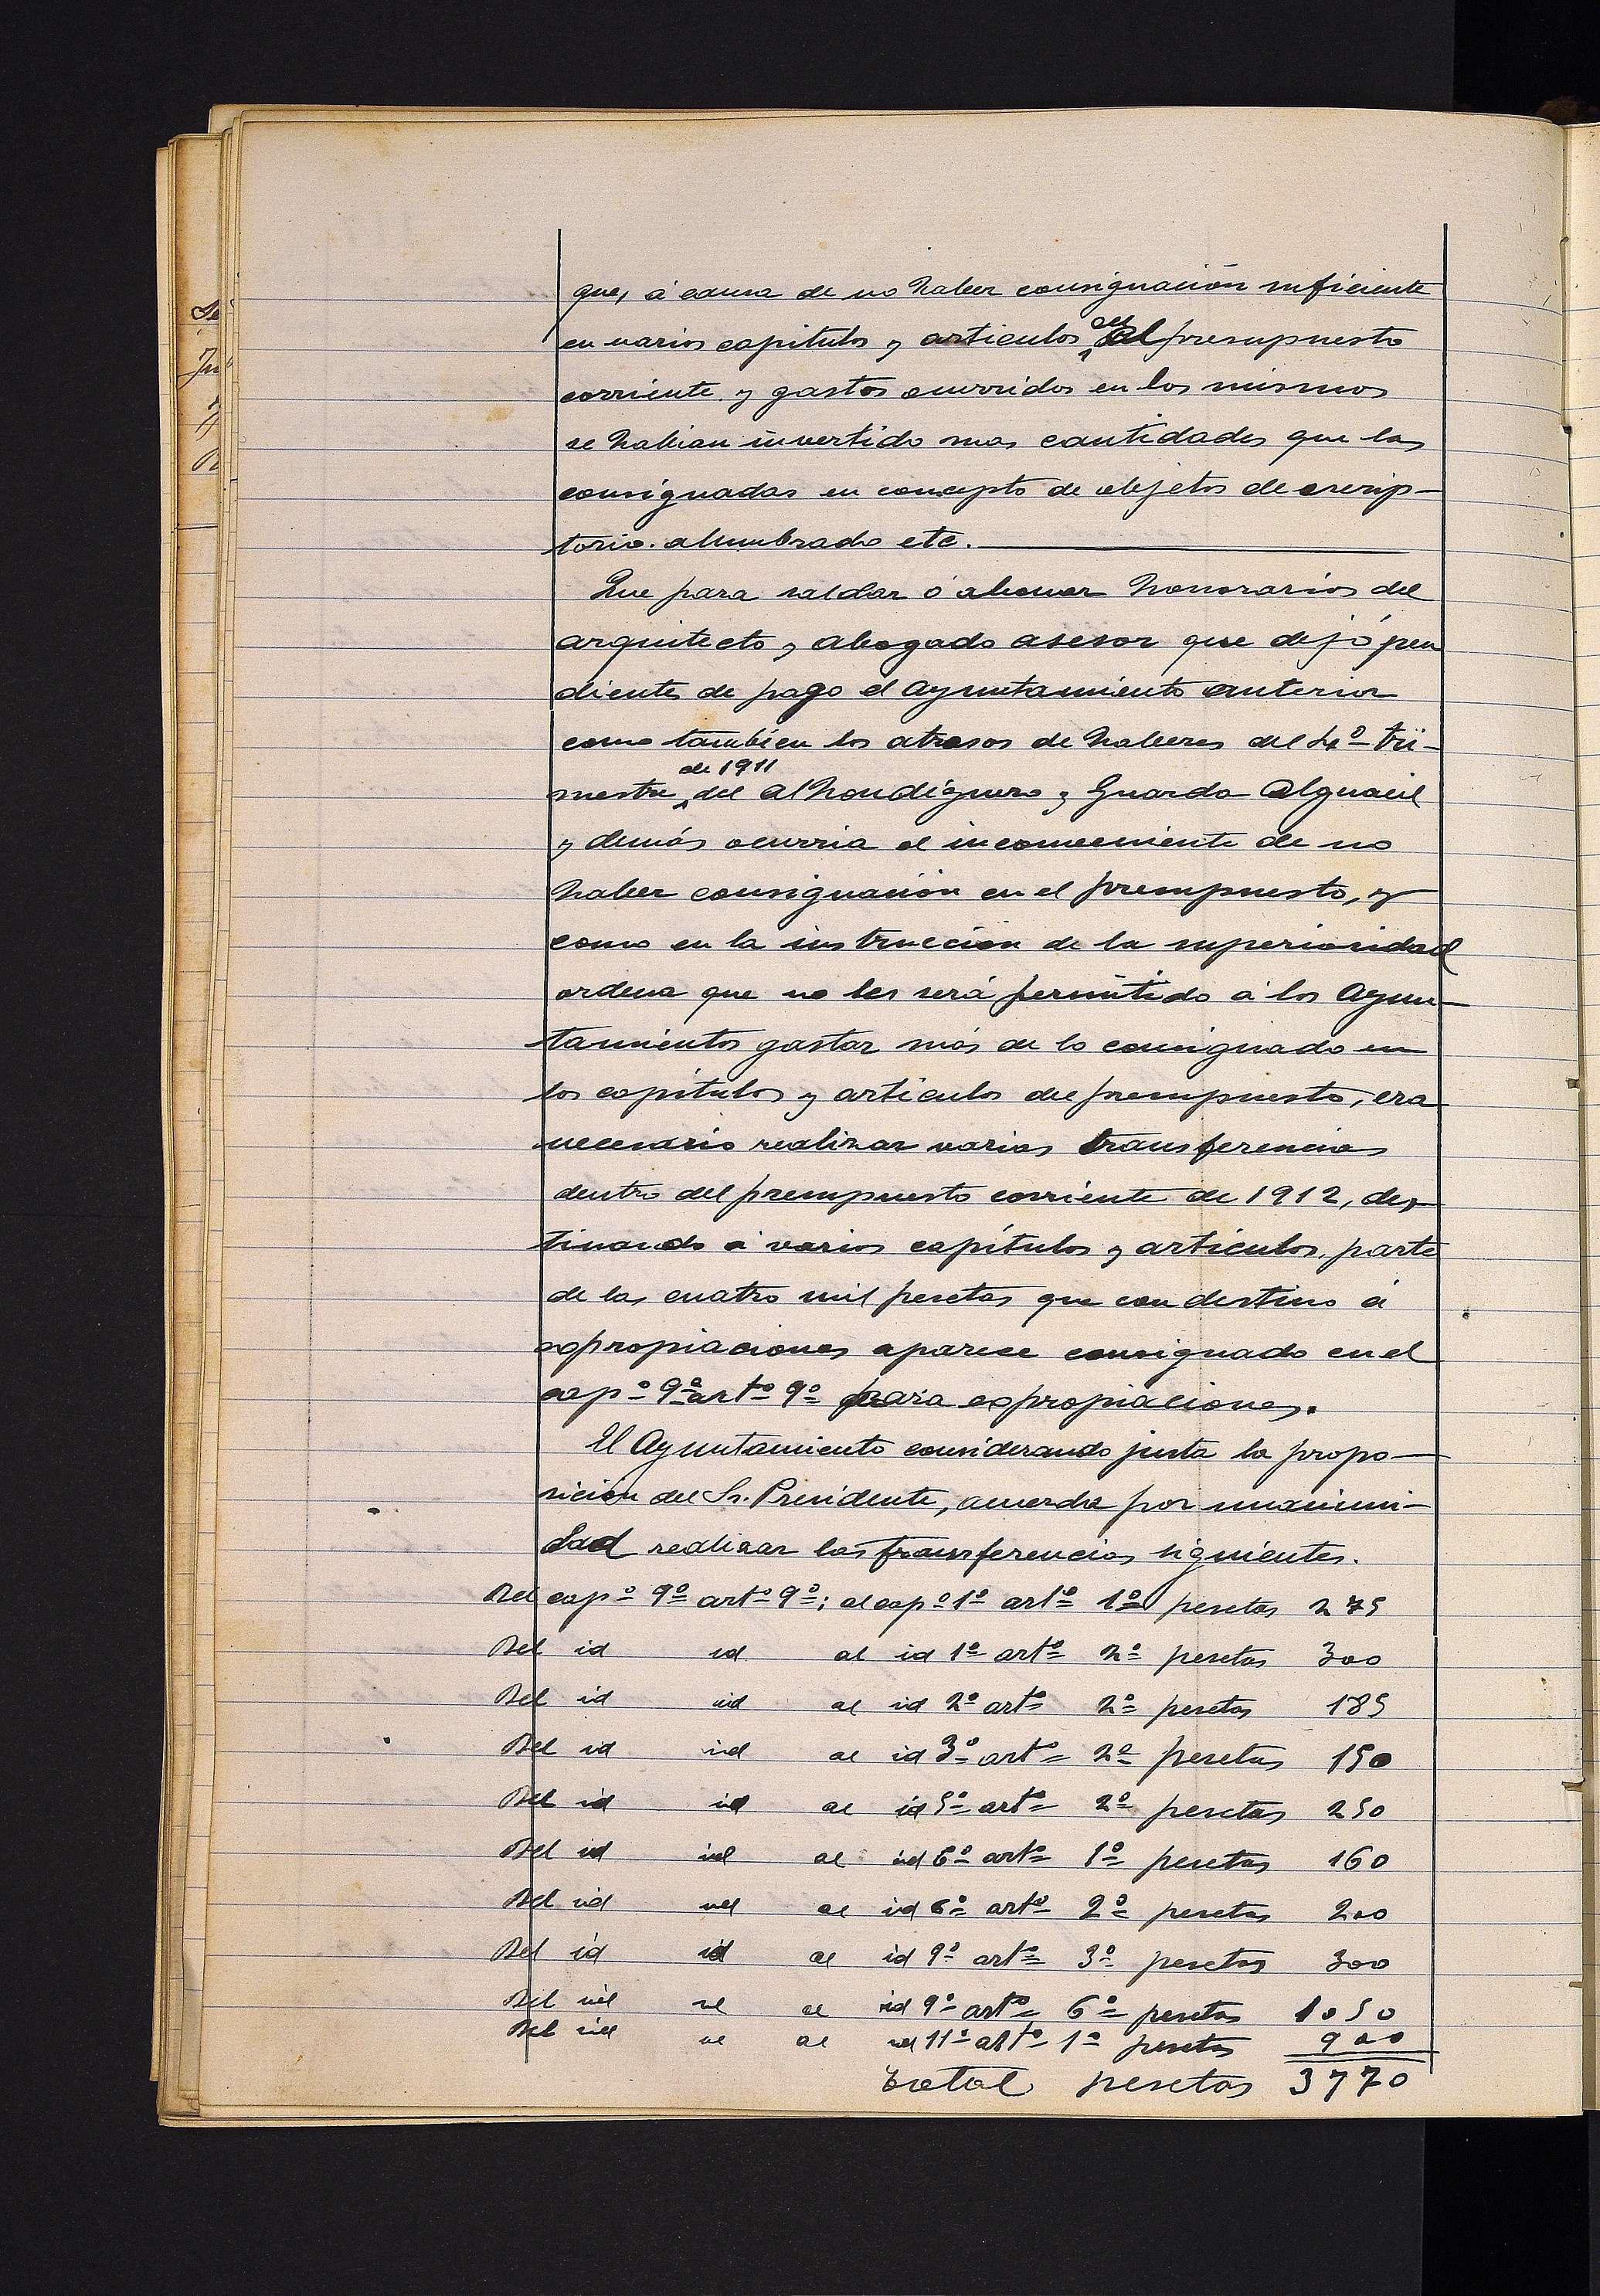 que, á causa de no haber consignación suficiente
en varios capítulos y artículos del presupuesto
corriente y gastos ocurridos en los mismos
se habian invertido mas cantidades que las
consignadas en concepto de objetos de escrip-
torio. alumbrado etc.
Que para saldar ó abonar honorarios del
arquitecto y abogado asesor que dejó pen
dientes de pago el Ayuntamiento anterior
como también los atrasos de haberes del 4º tri-
mestre de 1911 del Alhondiguero y Guarda Alguacil
y demás ocurria el inconveniente de no
haber consignación en el presupuesto, y
como en la instrucción de la superioridad
ordena que no les será permitido á los Ayun-
tamientos gastar más de lo consignado en
los capítulos y artículos del presupuesto, era
necesario realizar varias transferencias
dentro del presupuesto corriente de 1912, des-
tinando á varios capítulos y artículos, parte
de las cuatro mil pesetas que con destino á
expropiaciones aparece consignado en el
capº 9º artº 9º para expropiaciones.
El Ayuntamiento considerando justa la propo-
sición del Sr. Presidente, acuerda por unanimi-
dad realizar las transferencias siguientes.
Del capº 9º artº 9º; al capº 1º artº 1º pesetas 275
Del id id al id 1º artº 2º pesetas 300
Del id id al id 2º artº 2º pesetas 185
Del id id al id 3º artº 2º pesetas 150
Del id id al id 5º artº 2º pesetas 250
Del id id al id 6º artº 1º pesetas 160
Del id id al id 6º artº 2º pesetas 200
Del id id al id 9º artº 3º pesetas 300
Del id id al id 9º artº 6º pesetas 1050
Del id id al id 11º artº 1º pesetas 900
Total pesetas 3770